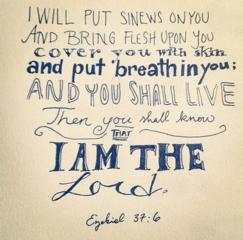 I WILL PUT SINEWS ON YOU
AND BRING FLESH UPON YOU
COVER YOU with skin
and put breath in you;
AND YOU SHALL LIVE
Then you shall know
THAT
I AM THE
Lord.
Ezekiel 37:6